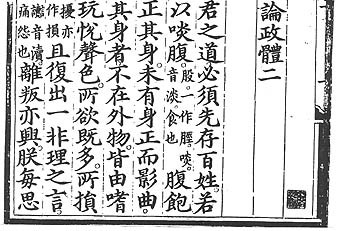 論政體二
君之道必須先存百姓若
以啖腹股一作脛啖音淡食也腹飽
正其身未有身正而影曲
其身者不在外物皆由嗜
玩悅聲色所欲既多所損
擾亦作損且復出一非理之言
讟音瀆痛怨也離叛亦興朕每思